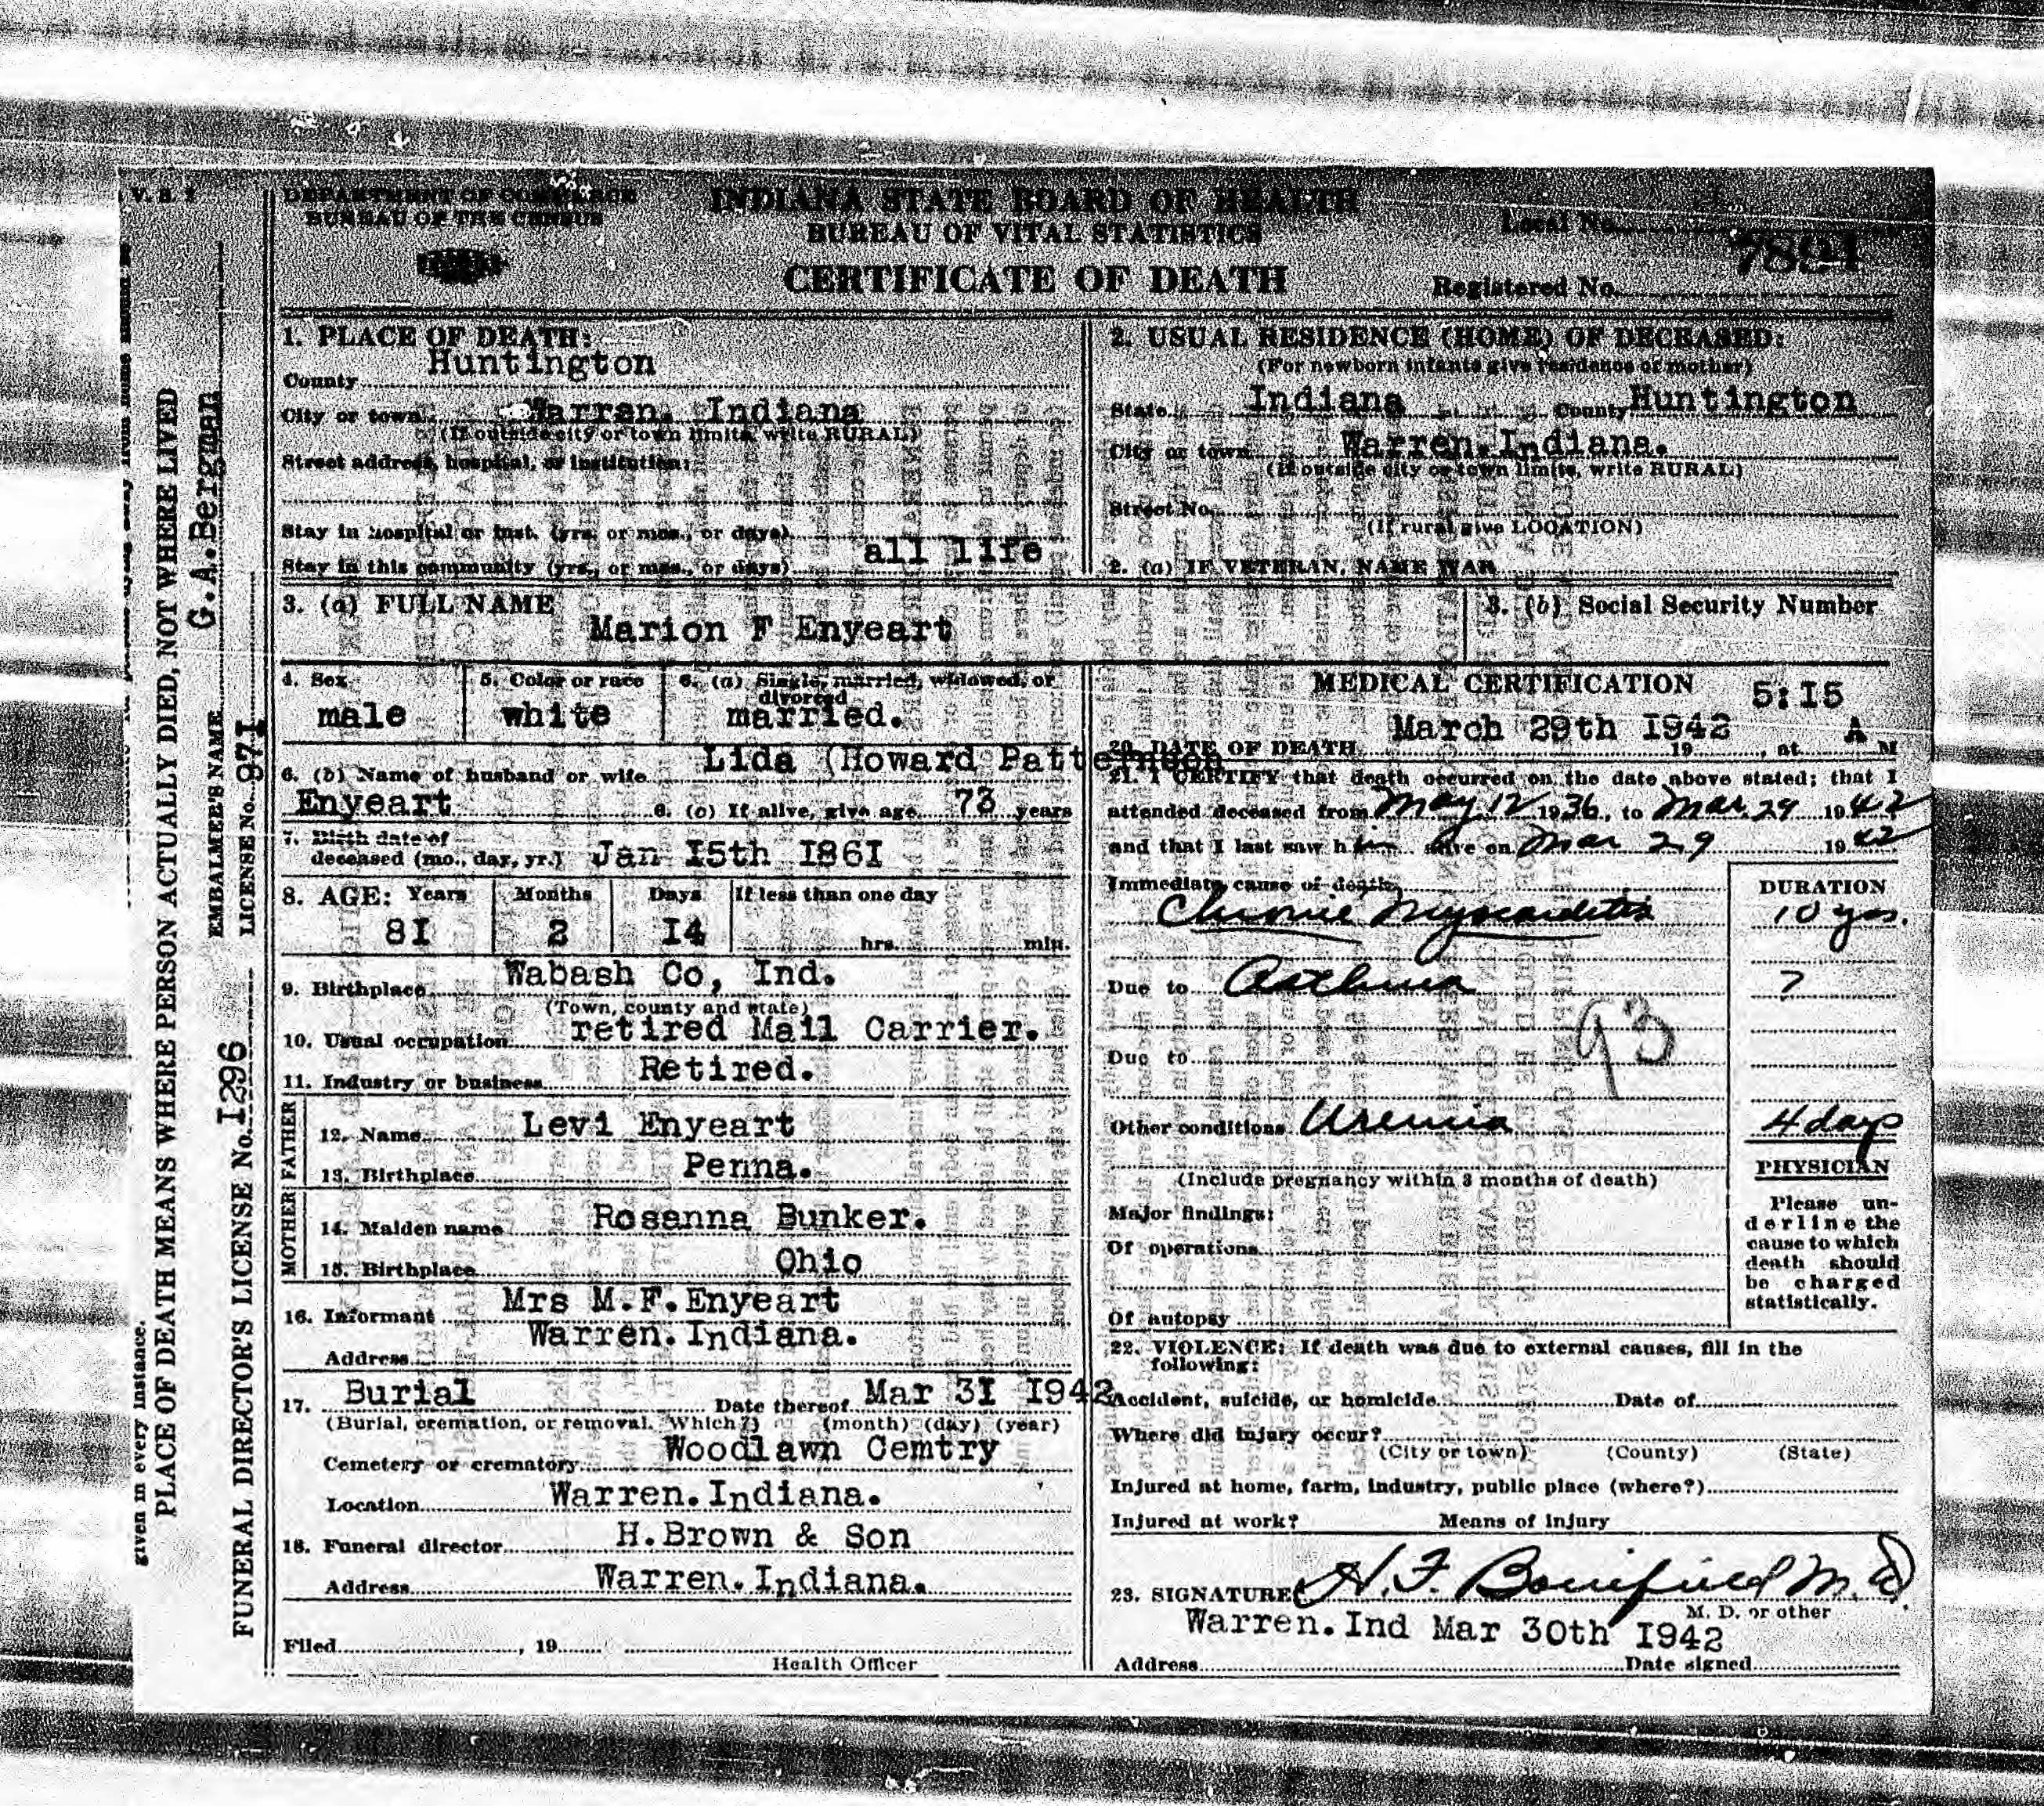 V. S. 1
DEPARTMENT OF COMMERCE
BUREAU OF THE CENSUS
INDIANA STATE BOARD OF HEALTH
BUREAU OF VITAL STATISTICS
CERTIFICATE OF DEATH
Local No.
Registered No.
1. PLACE OF DEATH:
County Huntington
City or town Warran. Indiana
(If outside city or town limits, write RURAL)
Street address, hospital, or institution:
Stay in hospital or inst. (yrs. or mos., or days)
Stay in this community (yrs., or mos., or days) all life
2. USUAL RESIDENCE (HOME) OF DECEASED:
(For newborn infants give residence of mother)
State Indiana County Huntington
City or town Warren.Indiana.
(If outside city or town limits, write RURAL)
Street No.
(If rural give LOCATION)
2. (a) IF VETERAN, NAME WAR
3. (a) FULL NAME
Marion F Enyeart
3. (b) Social Security Number
4. Sex
male
5. Color or race
white
6. (a) Single, married, widowed, or divorced
married.
6. (b) Name of husband or wife Lida (Howard Patterson
Enyeart 6. (c) If alive, give age 73 years
7. Birth date of
deceased (mo., day, yr.) Jan 15th 1861
8. AGE: Years Months Days If less than one day
81 2 14 hrs. min.
9. Birthplace Wabash Co, Ind.
(Town, county and state)
10. Usual occupation retired Mail Carrier.
11. Industry or business Retired.
FATHER
12. Name Levi Enyeart
13. Birthplace Penna.
MOTHER
14. Maiden name Rosanna Bunker.
15. Birthplace Ohio
16. Informant Mrs M.F.Enyeart
Address Warren.Indiana.
17. Burial Date thereof Mar 31 1942
(Burial, cremation, or removal. Which?) (month) (day) (year)
Cemetery or crematory Woodlawn Cemtry
Location Warren.Indiana.
18. Funeral director H.Brown & Son
Address Warren.Indiana.
Filed , 19
Health Officer
MEDICAL CERTIFICATION 5:15
20. DATE OF DEATH March 29th 1942 19 , at A M
21. I CERTIFY that death occurred on the date above stated; that I
attended deceased from May 12 1936, to Mar. 29 1942
and that I last saw him alive on Mar 29 1942
Immediate cause of death DURATION
Chronic Myocarditis 10 yrs.
Due to Asthma ?
93
Due to
Other conditions Uremia 4 days
(Include pregnancy within 3 months of death)
PHYSICIAN
Please un-
derline the
cause to which
death should
be charged
statistically.
Major findings:
Of operations
Of autopsy
22. VIOLENCE: If death was due to external causes, fill in the
following:
Accident, suicide, or homicide Date of
Where did injury occur?
(City or town) (County) (State)
Injured at home, farm, industry, public place (where?)
Injured at work? Means of injury
23. SIGNATURE H. F. Bonifield M.D
M. D. or other
Warren.Ind Mar 30th 1942
Address Date signed
given in every instance.
PLACE OF DEATH MEANS WHERE PERSON ACTUALLY DIED, NOT WHERE LIVED
EMBALMER'S NAME G.A.Bergman
FUNERAL DIRECTOR'S LICENSE No. 1296 LICENSE No. 971